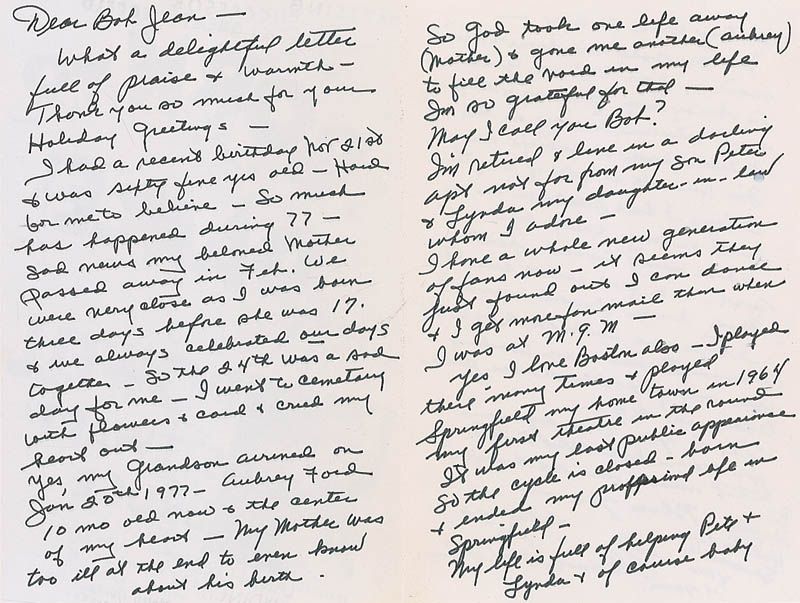 Dear Bob Jean —
What a delightful letter
full of praise & warmth —
Thank you so much for your
Holiday Greetings —
I had a recent birthday Nov 21st
& was sixty five yrs old — Hard
for me to believe — So much
has happened during 77 —
Sad news my beloved Mother
passed away in Feb. We
were very close as I was born
three days before she was 17.
& we always celebrated our days
together — So the 24th was a sad
day for me — I went to cemetary
with flowers & card & cried my
heart out —
Yes, my Grandson arrived on
Jan 20th 1977 — Aubrey Ford
10 mo old now & the center
of my heart — My Mother was
too ill at the end to even know
about his birth.
So God took one life away
(Mother) & gave me another (Aubrey)
to fill the void in my life
I'm so grateful for that —
May I call you Bob?
I'm retired & live in a darling
apt not far from my son Peter
& Lynda my daughter-in-law
whom I adore —
I have a whole new generation
of fans now — it seems they
just found out I can dance
& I get more fan mail than when
I was at M.G.M —
yes I love Boston also — I played
there many times & played
Springfield my home town in 1964
my first theatre in the round
It was my last public appearance
So the cycle is closed — born
& ended my life in
Springfield —
My life is full of helping Pete &
Lynda & of course baby